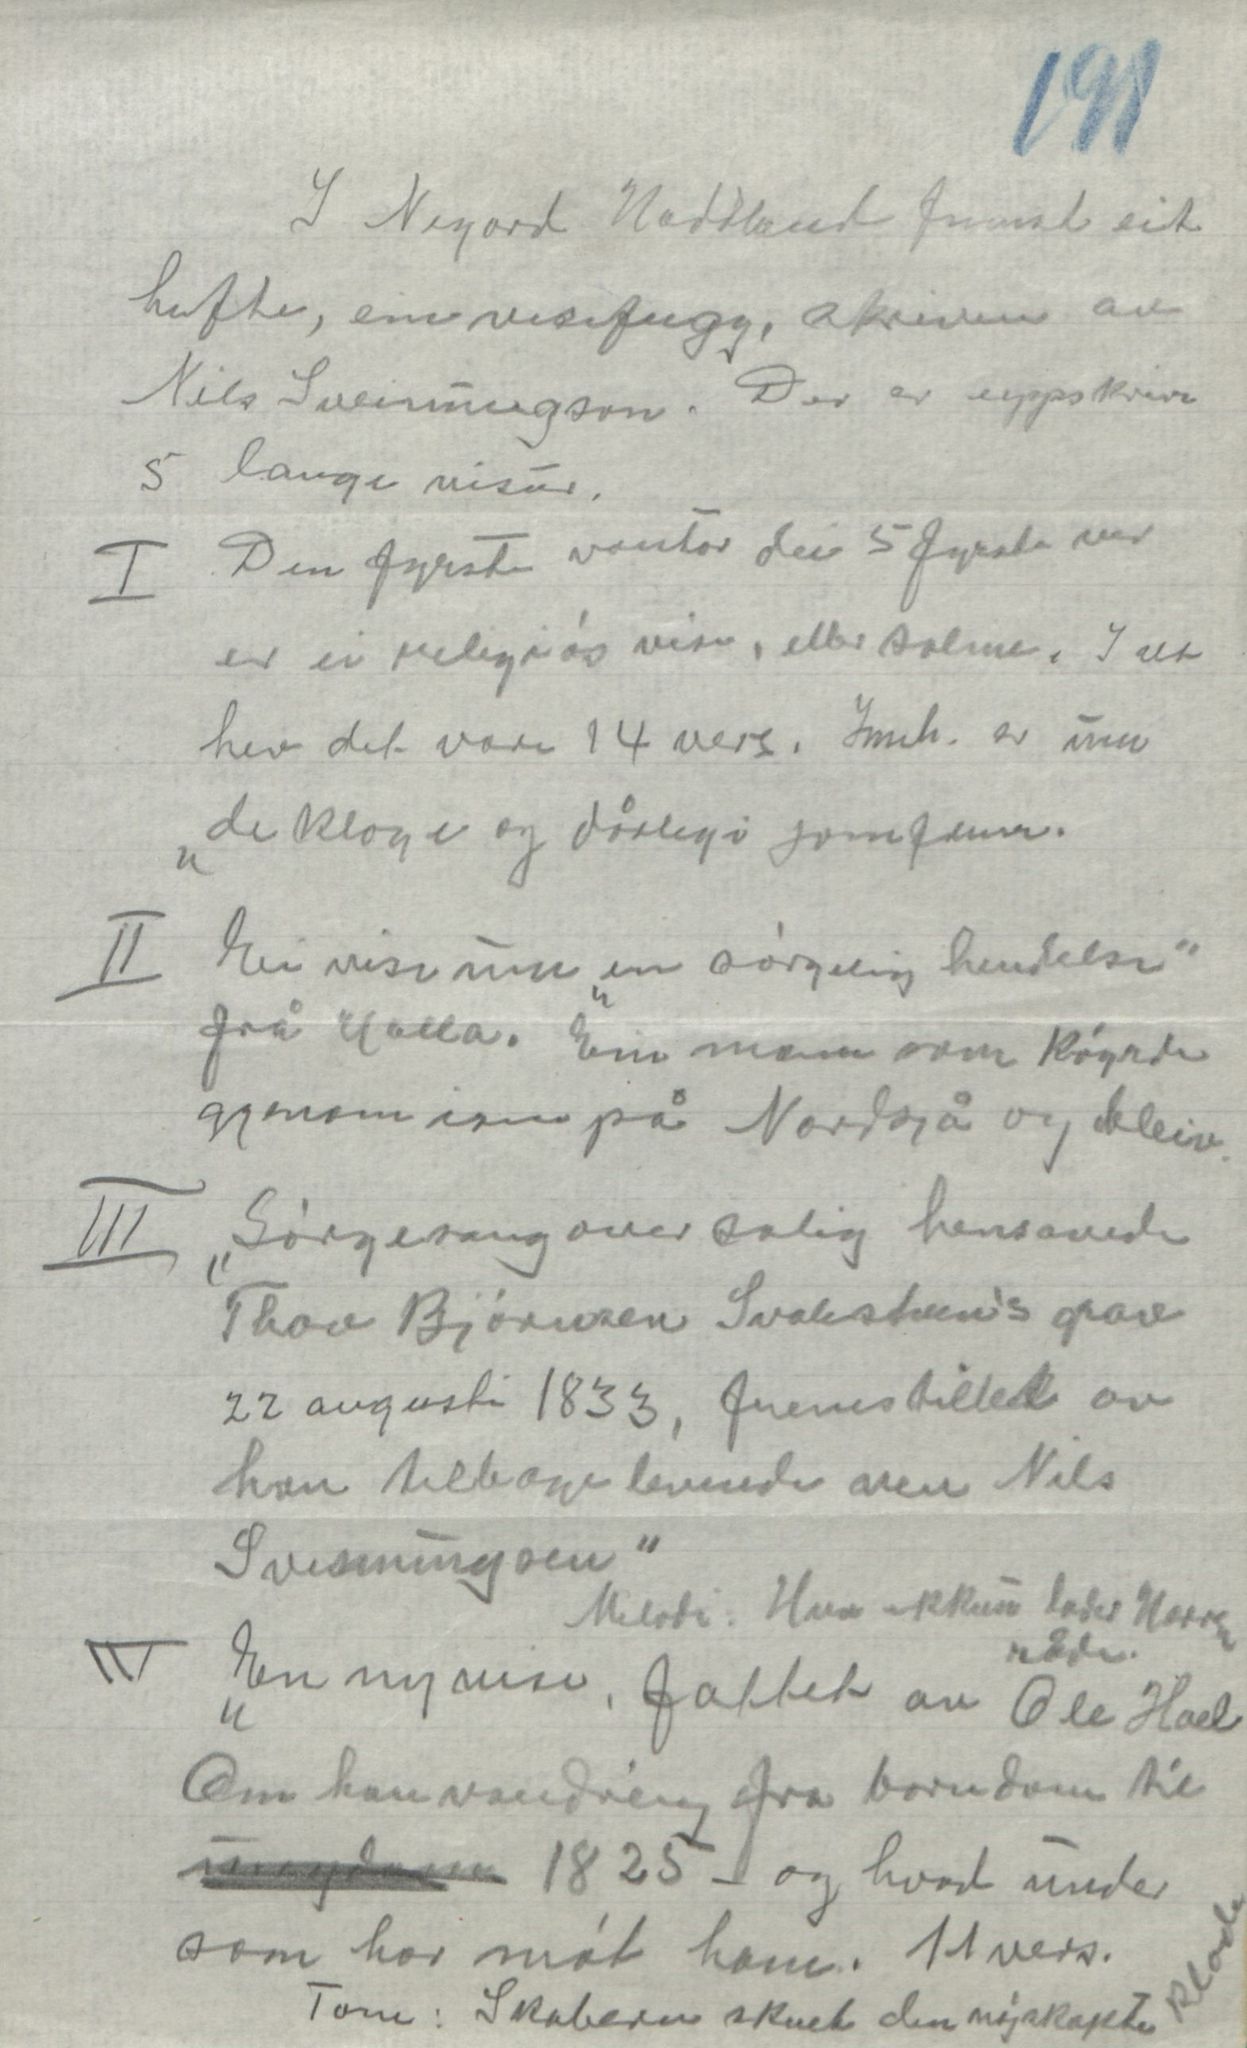 191
I Negard Haddland finnst eit
hefte, ein visefugg, skriven av
Nils Sveinungson. Der er uppskrive
5 lange visur.
I Den fyrste vantar dei 5 fyrste ver
er ei religiös vise, eller salme. I alt
hev det vore 14 vers. Innh. er um
„de kloge og dårlegi jomfruer.
II Ei vise um „en sörgelig hendelse"
frå Holla. Ein mann som köyrde
gjenom isen på Nordsjå og bleiv.
III „Sörgesang over salig hensovede
Thov Björnsen Svalestuen's grav
22 augusti 1833, fremstillet av
han tilbagelevende ven Nils
Sveinungsen"
Melodi: Hvo ikkun lader Herren
råde.
IV „En ny vise, fattet av Ole Hoel
Om han vandring fra barndom til
1825 – og hvad under
som har möt ham. 11 vers.
Tone: Skaberen skuet den nyskapte
klode